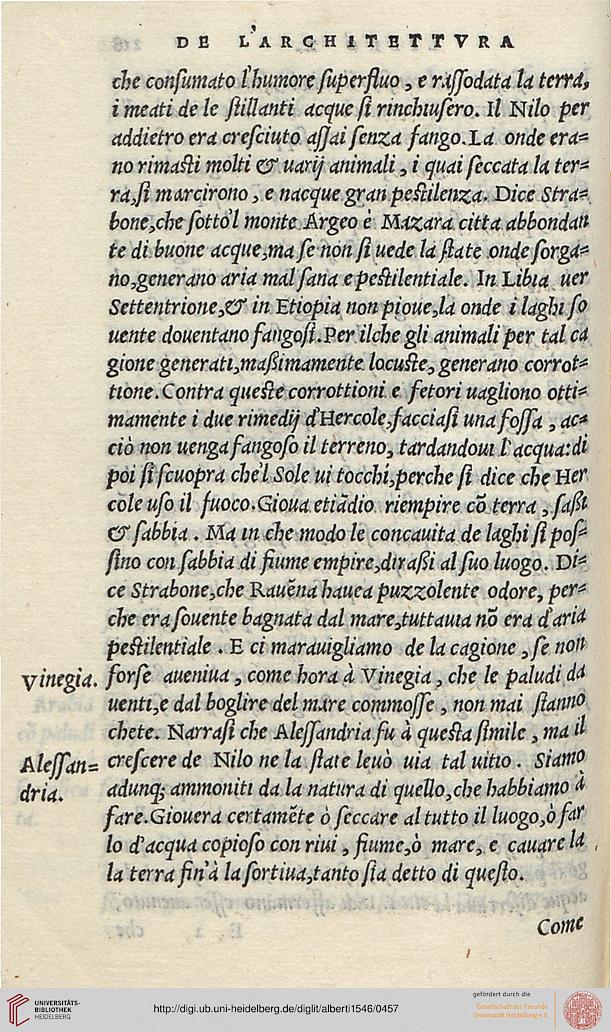 DE L'ARCHITETTVRA
che consumato l'humore superfluo, e rassodata la terra,
i meati de le stillanti acque si rinchiusero. Il Nilo per
addietro era cresciuto assai senza fango. La onde era=
no rimasti molti & uarij animali, i quai seccata la ter=
ra, si marcirono, e nacque gran pestilenza. Dice Stra=
bone, che sotto'l monte Argeo è Mazara citta abbondan
te di buone acque, ma se non si uede la state onde sorga=
no, generano aria mal sana e pestilentiale. In Libia uer
Settentrione, & in Etiopia non pioue, la onde i laghi so
uente douentano fangosi. Per ilche gli animali per tal ca
gione generati, maßimamente locuste, generano corrot=
tione. Contra queste corrottioni e fetori uagliono otti=
mamente i due rimedij d'Hercole, facciasi una fossa, ac=
ciò non uenga fangoso il terreno, tardandoui l'acqua: di
poi si scuopra che'l Sole ui tocchi, perche si dice che Her
cole uso il fuoco. Gioua etiādio riempire cō terra, saßi
& sabbia. Ma in che modo le concauita de laghi si pos=
sino con sabbia di fiume empire, diraßi al suo luogo. Di=
ce Strabone, che Rauēna hauea puzzolente odore, per=
che era souente bagnata dal mare, tuttauia nō era d'aria
pestilentiale. E ci marauigliamo de la cagione, se non
Vinegia. forse aueniua, come hora à Vinegia, che le paludi da
uenti, e dal boglire del mare commosse, non mai stanno
chete. Narrasi che Alessandria fu à questa simile, ma il
Alessan= crescere de Nilo ne la state leuò uia tal uitio. Siamo
dria. adunq; ammoniti da la natura di quello, che habbiamo à
fare. Giouera certamēte ò seccare al tutto il luogo, ò far
lo d'acqua copioso con riui, fiume, ò mare, e cauare la
la terra fin'à la sortiua, tanto sia detto di questo.
Come
UNIVERSITÄTS-
BIBLIOTHEK
HEIDELBERG
http://digi.ub.uni-heidelberg.de/diglit/alberti1546/0457
gefördert durch die
Gesellschaft der Freunde
Universität Heidelberg e.V.